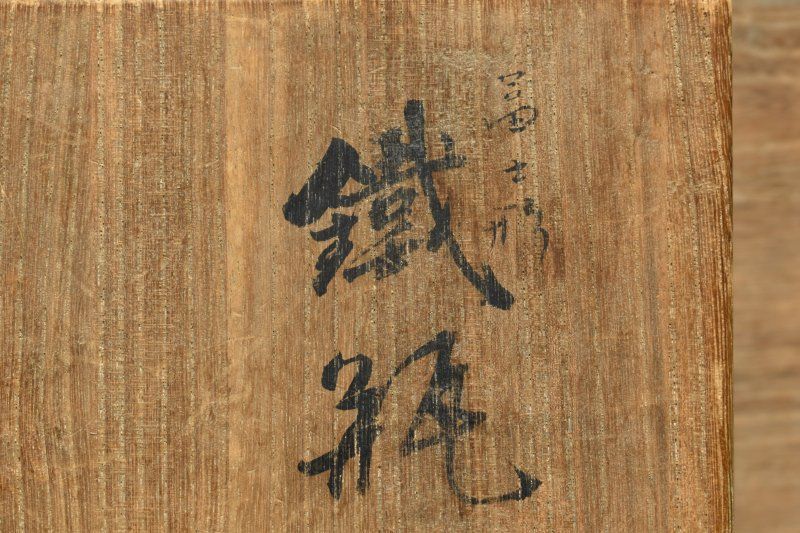 冨士形
鐵瓶